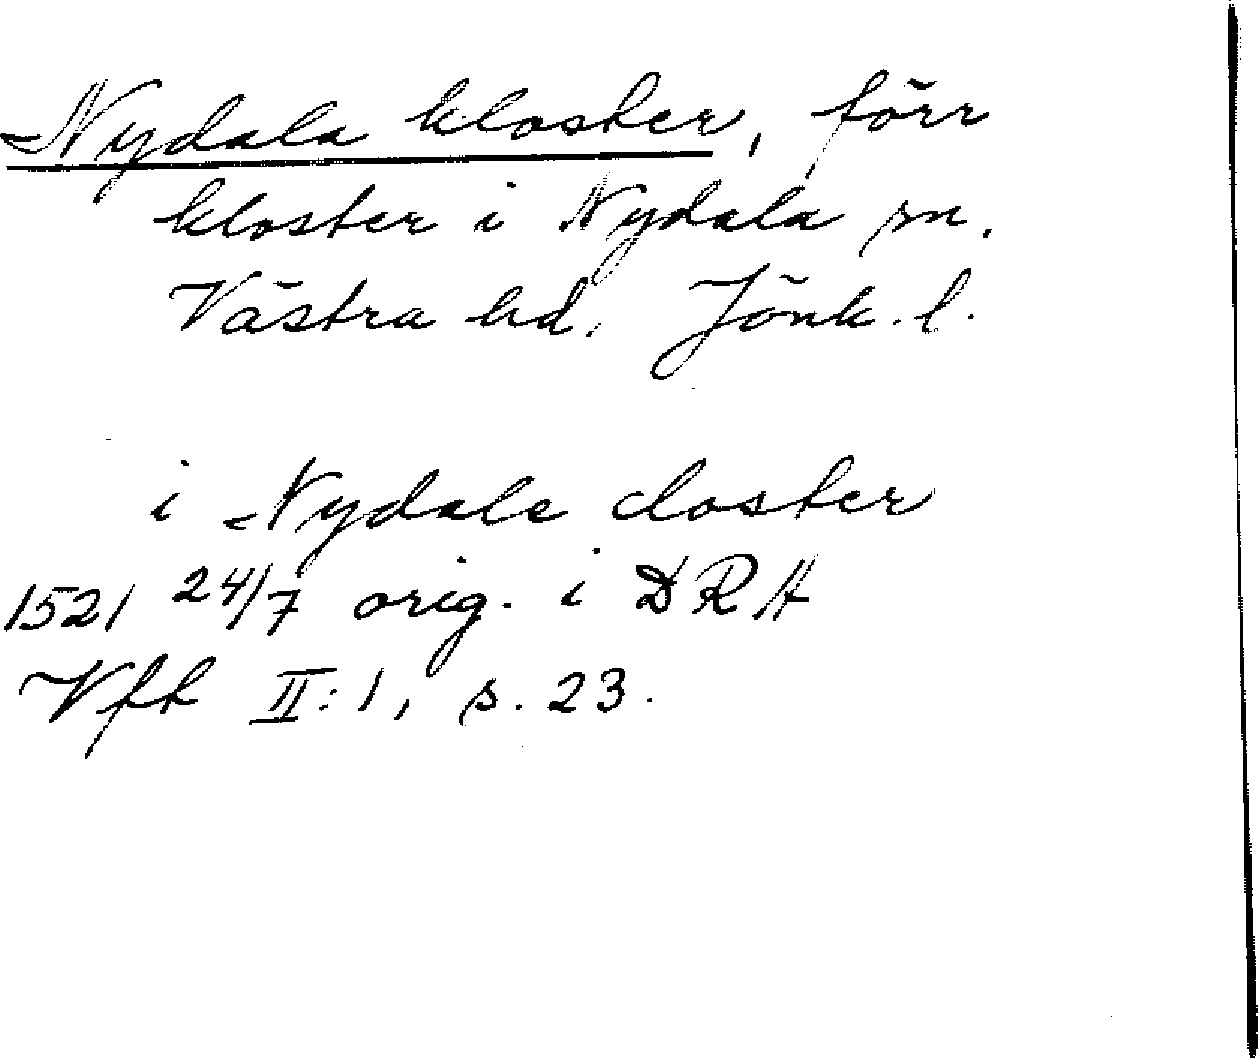 Nydala kloster, förr
kloster i Nydala sn.
Västra hd. Jönk. l.
i Nydale closter
1521 24/7 orig. i DRA
Vfk II:1, s. 23.